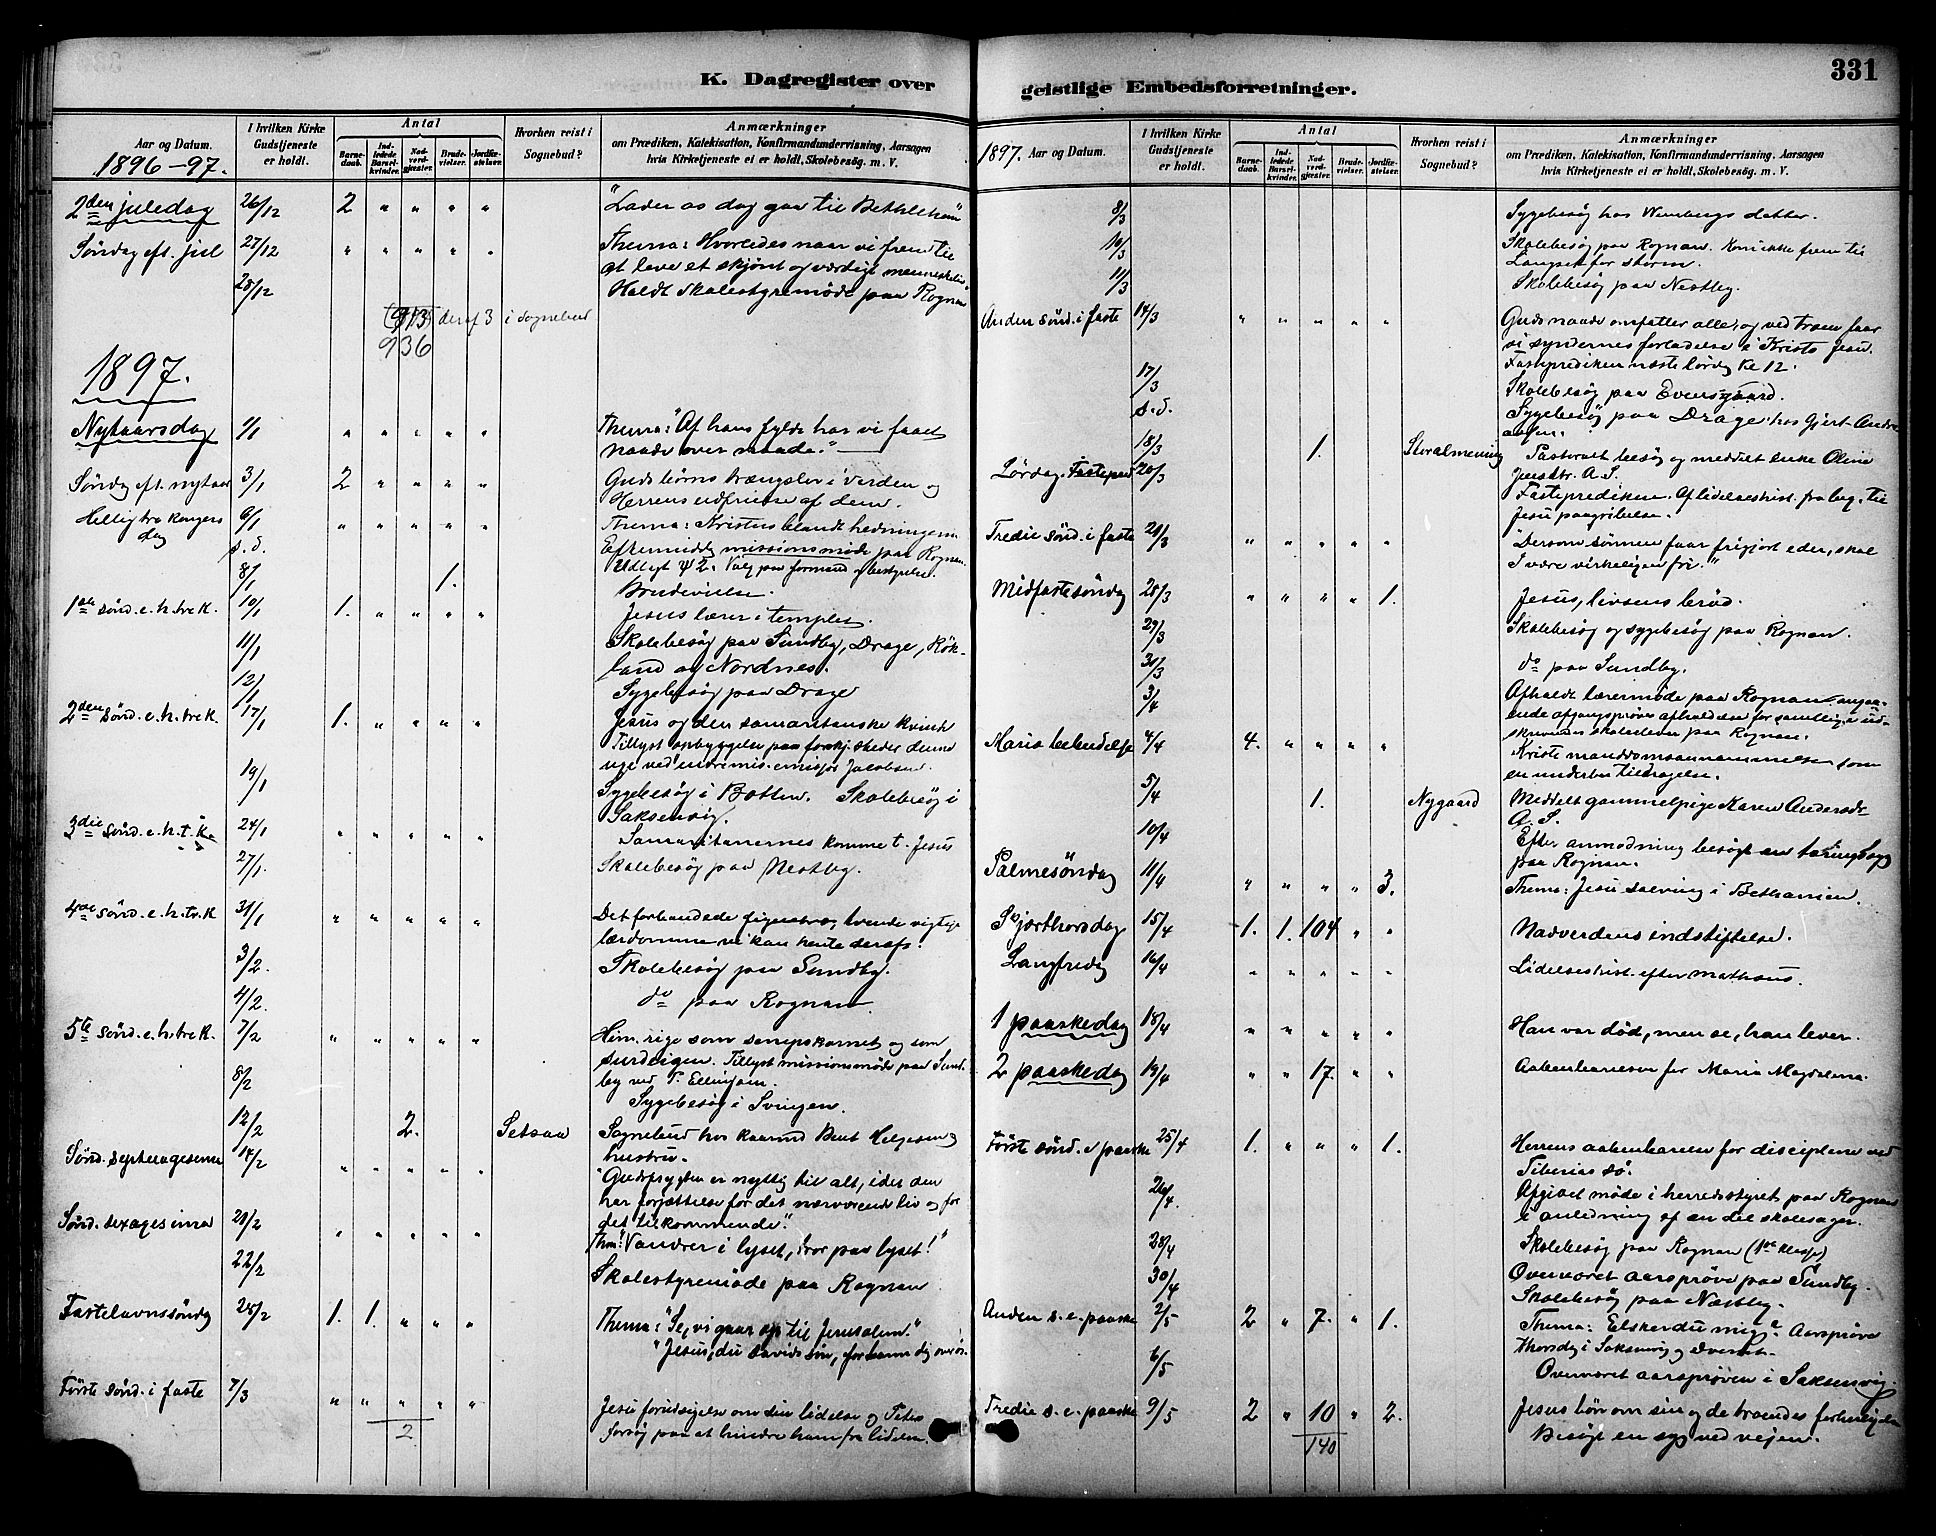 K. Dagregister over
Aar og Datum.
1896-97.
I hvilken Kirke
Gudstjeneste
er holdt.
Antal
Barne-
daab.
Ind-
ledede
Barsel-
kvinder.
Nad-
verd-
gjæster.
Brude-
vielser.
Jordfæ-
stelser.
Hvorhen reist i
Sognebud?
Anmærkninger
om Prædiken, Katekisation, Konfirmandundervisning, Aarsagen
hvis Kirketjeneste ei er holdt, Skolebesøg m. V.
2den juledag 26/12 2 " " " " "Lader os dog gaa til Bethlehem"
Søndag eft. jul 27/12 " " " " " Thema: Hvorledes naar vi frem til
at leve et skjønt og værdigt menneskeliv.
28/12 Holdt Skolestyremøde paa Rognan
(913) deraf 3 i sognebud
936
1897.
Nytaarsdag 1/1 " " " " " Thema: "Af hans fylde har vi faaet
naade over naade."
Søndag eft. nytaar 3/1 2 " " " " Guds børns trængsler i verden og
Herrens udfrielse af dem.
Hellig tre kongers 6/1 " " " " " Thema: Kristus blandt hedningerne
dag s.d. Eftermiddag missionsmøde paa Rognan.
Udlagt ψ 2. Valg paa formand og bestyrelse.
8/1 1. Brudevielse.
1ste sønd. e. h. tre K. 10/1 1. " " " " Jesus lærer i templet.
11/1 Skolebesøg paa Sundby, Drage, Røk-
land og Nordnes.
12/1 Sygebesøg paa Drage
2den sønd. e. h. tre K. 17/1 1. " " " " Jesus og den samaritanske kvinde
Tillyst opbyggelse paa forskj. steder denne
uge ved indremis.emissær Jacobsen.
19/1 Sygebesøg i Botten. Skolebesøg i
Saksenvig.
3die sønd. e. h. t. K. 24/1 " " " " " Samaritanernes komme t. Jesus
27/1. Skolebesøg paa Nestby.
4de sønd. e. h. tr. K 31/1 " " " " " Det forbandede figentræ, tvende vigtige
lærdomme vi kan hente deraf.
3/2. Skolebesøg paa Sundby.
4/2. do paa Rognan
5te sønd. e. h. tre K. 7/2 " " " " " Him.rige som senepskornet og som
surdeigen. Tillyst missionsmøde paa Sund-
by ved P. Ellingsen.
8/2 Sygebesøg i Svingen.
12/2 2. Setsaa Sognebud hos kaarmd Bent Helgesen og
hustru.
Sønd. septuagesima 14/2 " " " " " "Gudsfrygten er nyttig til alt, idet den
har forjættelse for det nærværende liv og for
det tilkommende".
Sønd. sexagesima 21/2 " " " " " Thm: "Vandrer i lyset, tror paa lyset!"
22/2 Skolestyremøde paa Rognan
Fastelavnssøndg 28/2 1. 1. " " " Thema: "Se, vi gaar op til Jerusalem."
"Jesus, du Davids søn, forbarm dig over os.
Første sønd. i faste 7/3 " " " " " Jesu forudsigelse om sin lidelse og Peters
forsøg paa at hindre ham fra lidelsen.
2
geistlige Embedsforretninger.
331
1897. Aar og Datum.
I hvilken Kirke
Gudstjeneste
er holdt.
Antal
Barne-
daab.
Ind-
ledede
Barsel-
kvinder.
Nad-
verd-
gjæster.
Brude-
vielser.
Jordfæ-
stelser.
Hvorhen reist i
Sognebud?
Anmærkninger
om Prædiken, Katekisation, Konfirmandundervisning, Aarsagen
hvis Kirketjeneste ei er holdt, Skolebesøg, m. V.
8/3 Sygebesøg hos Wembergs datter.
10/3 Skolebesøg paa Rognan. Kom ikke frem til
Langset for storm.
11/3 Skolebesøg paa Nestby.
Anden sønd. i faste 14/3 " " " " " Guds naade omfatter alle, og ved troen faar
vi syndernes forladelse i Kristo Jesu.
Fasteprediken næste lørdg kl 12.
17/3 Skolebesøg paa Evensgaard.
s.d. Sygebesøg paa Drage hos Gjert Andre
asen.
18/3 1. Storalmening Pastoralt besøg og meddelt enke Oline
Jensdtr. A.S.
Lørdag, Fastepred 20/3 Fasteprediken. Af lidelseshist. fra beg. til
Jesu paagribelse.
Tredie sønd. i faste 21/3 " " " " " "Dersom sønnen faar frigjort eder, skal
I være virkeligen fri."
Midfastesøndag 28/3 " " " " 1. Jesus, livsens brød.
29/3 Skolebesøg og sygebesøg paa Rognan.
30/3 do paa Sundby.
3/4 Afholdt lærermøde paa Rognan angaa-
ende afgangsprøves afholdelse for samtlige ud-
skrevendes skoleelever paa Rognan.
Mariæ bebudelse 4/4 4. " " " " Kristi manddomsannammelse som
en underbar tildragelse.
5/4 1. Nygaard Meddelt gammelpige Karen Andersdr
A. S.
10/4 Efter anmodning besøgt en tæringssyg
paa Rognan.
Palmesøndag 11/4 " " " " 3. Thema: Jesu salving i Bethanien.
Skjærthorsdag 15/4 1. 1. 104 " " Nadverdens indstiftelse.
Langfredag 16/4 " " " " " Lidelseshist. efter Mathæus.
1 paaskedag 18/4 " " " " " Han var død, men se, han lever.
2 paaskedag 19/4 " " 17. " " Aabenbarelsen for Maria Magdalena.
Første sønd. e paaske 25/4 1. " " " 1. Herrens aabenbarelse for disciplene ved
Tiberias sø.
26/4. Afgivet møde i herredsstyret paa Rognan
i anledning af en del skolesager.
28/4 Skolebesøg paa Rognan (1ste klasse)
30/4 Overværet aarsprøve paa Sundby.
Skolebesøg paa Næstby.
Anden s. e. paaske 2/5 2 " 7. " 1. Thema: Elsker du mig? Aarsprøve
Thorsdg i Saksenvig og Evensg.
6/5 Overværet aarsprøven i Saksenvig.
Tredie s. e. paaske 9/5 2 " 10 " 2. Jesus bøn om sin og de troendes forherligelse
Besøgt en syg ved veien.
140